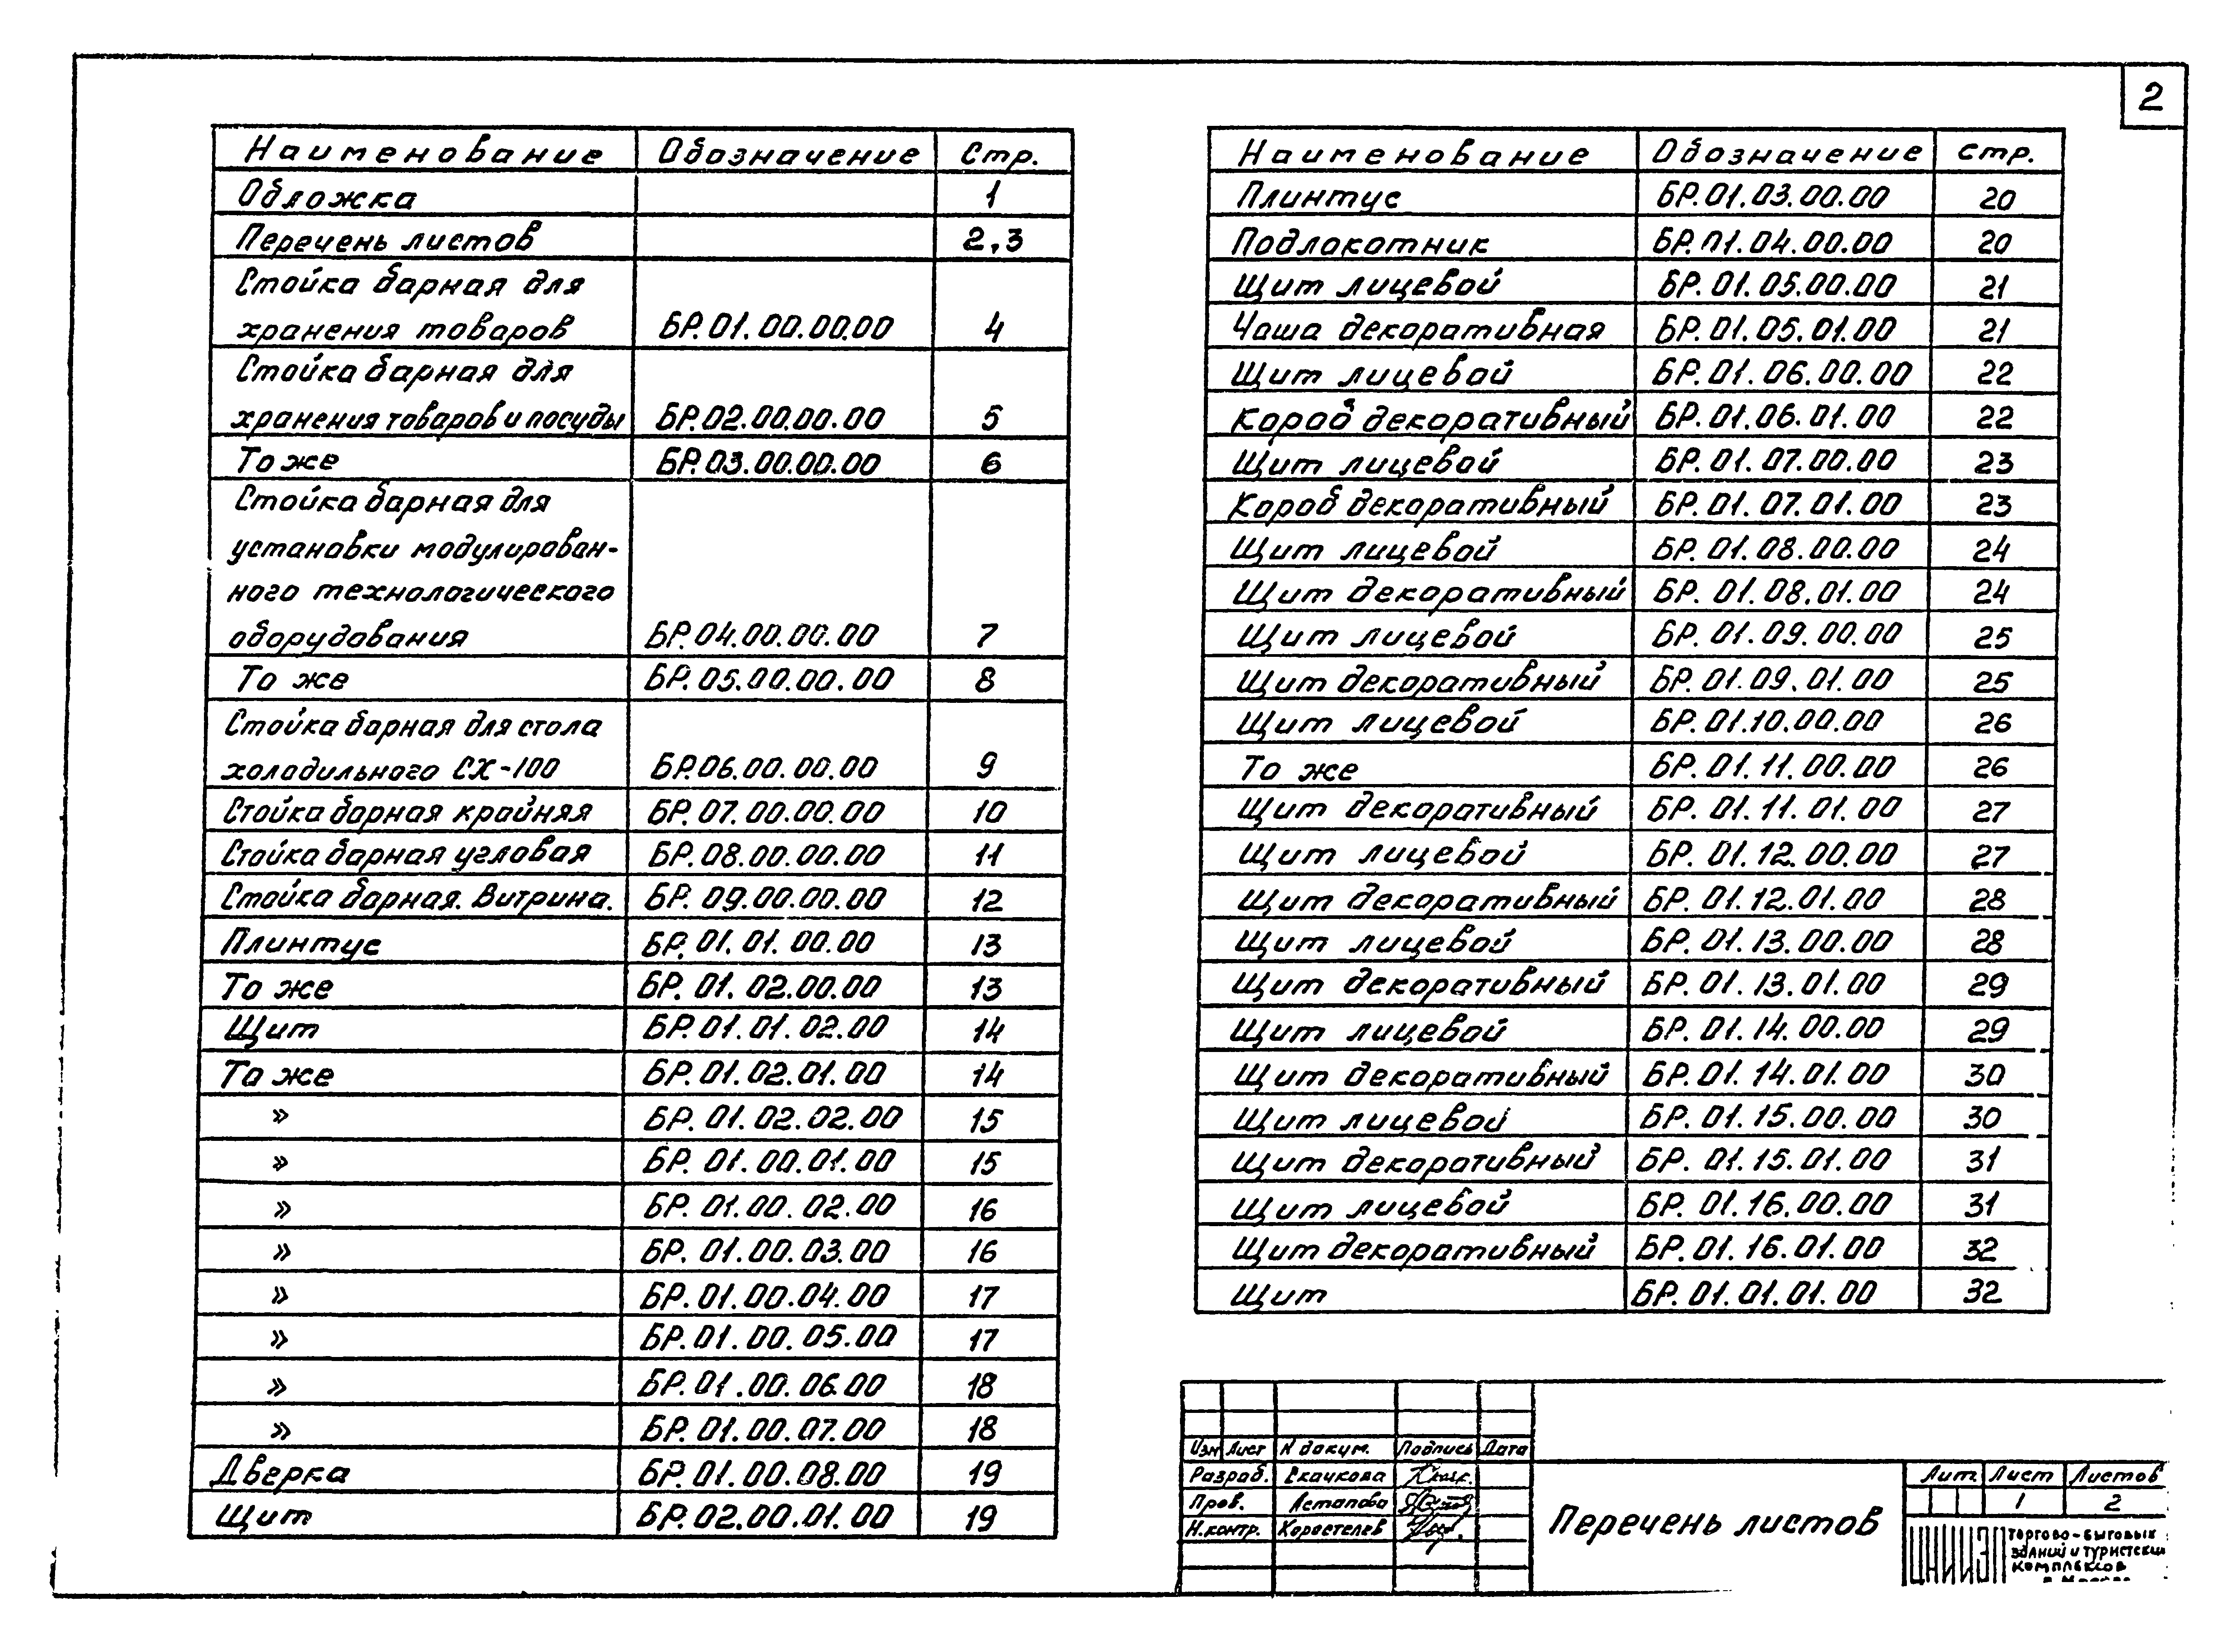 2
Наименование Обозначение Стр.
Обложка 1
Перечень листов 2,3
Стойка барная для
хранения товаров БР.01.00.00.00 4
Стойка барная для
хранения товаров и посуды БР.02.00.00.00 5
То же БР.03.00.00.00 6
Стойка барная для
установки модулирован-
ного технологического
оборудования БР.04.00.00.00 7
То же БР.05.00.00.00 8
Стойка барная для стола
холодильного СХ-100 БР.06.00.00.00 9
Стойка барная крайняя БР.07.00.00.00 10
Стойка барная угловая БР.08.00.00.00 11
Стойка барная. Витрина. БР.09.00.00.00 12
Плинтус БР.01.01.00.00 13
То же БР.01.02.00.00 13
Щит БР.01.01.02.00 14
То же БР.01.02.01.00 14
» БР.01.02.02.00 15
» БР.01.00.01.00 15
» БР.01.00.02.00 16
» БР.01.00.03.00 16
» БР.01.00.04.00 17
» БР.01.00.05.00 17
» БР.01.00.06.00 18
» БР.01.00.07.00 18
Дверка БР.01.00.08.00 19
Щит БР.02.00.01.00 19
Наименование Обозначение Стр.
Плинтус БР.01.03.00.00 20
Подлокотник БР.01.04.00.00 20
Щит лицевой БР.01.05.00.00 21
Чаша декоративная БР.01.05.01.00 21
Щит лицевой БР.01.06.00.00 22
Короб декоративный БР.01.06.01.00 22
Щит лицевой БР.01.07.00.00 23
Короб декоративный БР.01.07.01.00 23
Щит лицевой БР.01.08.00.00 24
Щит декоративный БР.01.08.01.00 24
Щит лицевой БР.01.09.00.00 25
Щит декоративный БР.01.09.01.00 25
Щит лицевой БР.01.10.00.00 26
То же БР.01.11.00.00 26
Щит декоративный БР.01.11.01.00 27
Щит лицевой БР.01.12.00.00 27
Щит декоративный БР.01.12.01.00 28
Щит лицевой БР.01.13.00.00 28
Щит декоративный БР.01.13.01.00 29
Щит лицевой БР.01.14.00.00 29
Щит декоративный БР.01.14.01.00 30
Щит лицевой БР.01.15.00.00 30
Щит декоративный БР.01.15.01.00 31
Щит лицевой БР.01.16.00.00 31
Щит декоративный БР.01.16.01.00 32
Щит БР.01.01.01.00 32
Изм Лист N докум. Подпись Дата
Разраб. Скачкова
Пров. Астапова
Н.контр. Коростелев
Перечень листов
Лит. Лист Листов
1 2
ЦНИИЭП
торгово-бытовых
зданий и туристских
комплексов